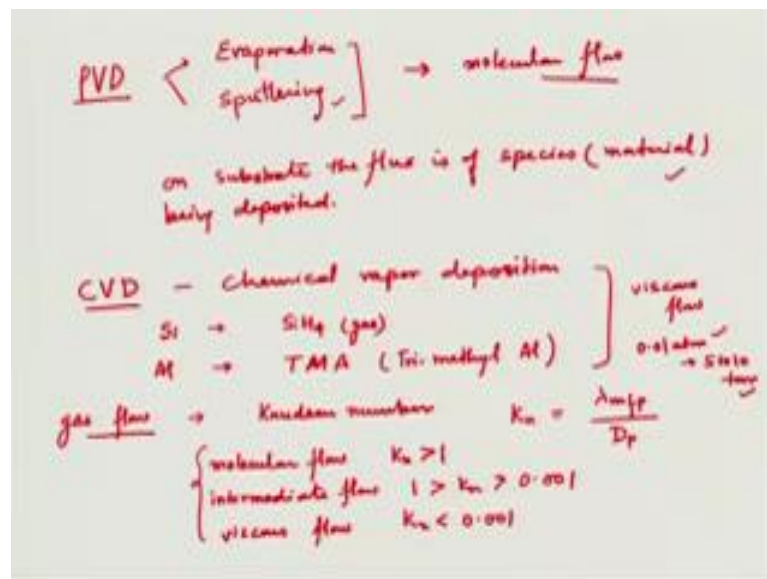 PVD < Evaporation
sputtering → molecular flow
on substrate the flux is of species (material)
being deposited.
CVD - chemical vapor deposition
Si → SiH4 (gas)
Al → TMA (Tri-methyl Al)
viscous
flow
0.01 atm
→
torr
gas flow → Knudsen number Kn = λmfp / Dp
molecular flow Kn > 1
intermediate flow 1 > Kn > 0.001
viscous flow Kn < 0.001